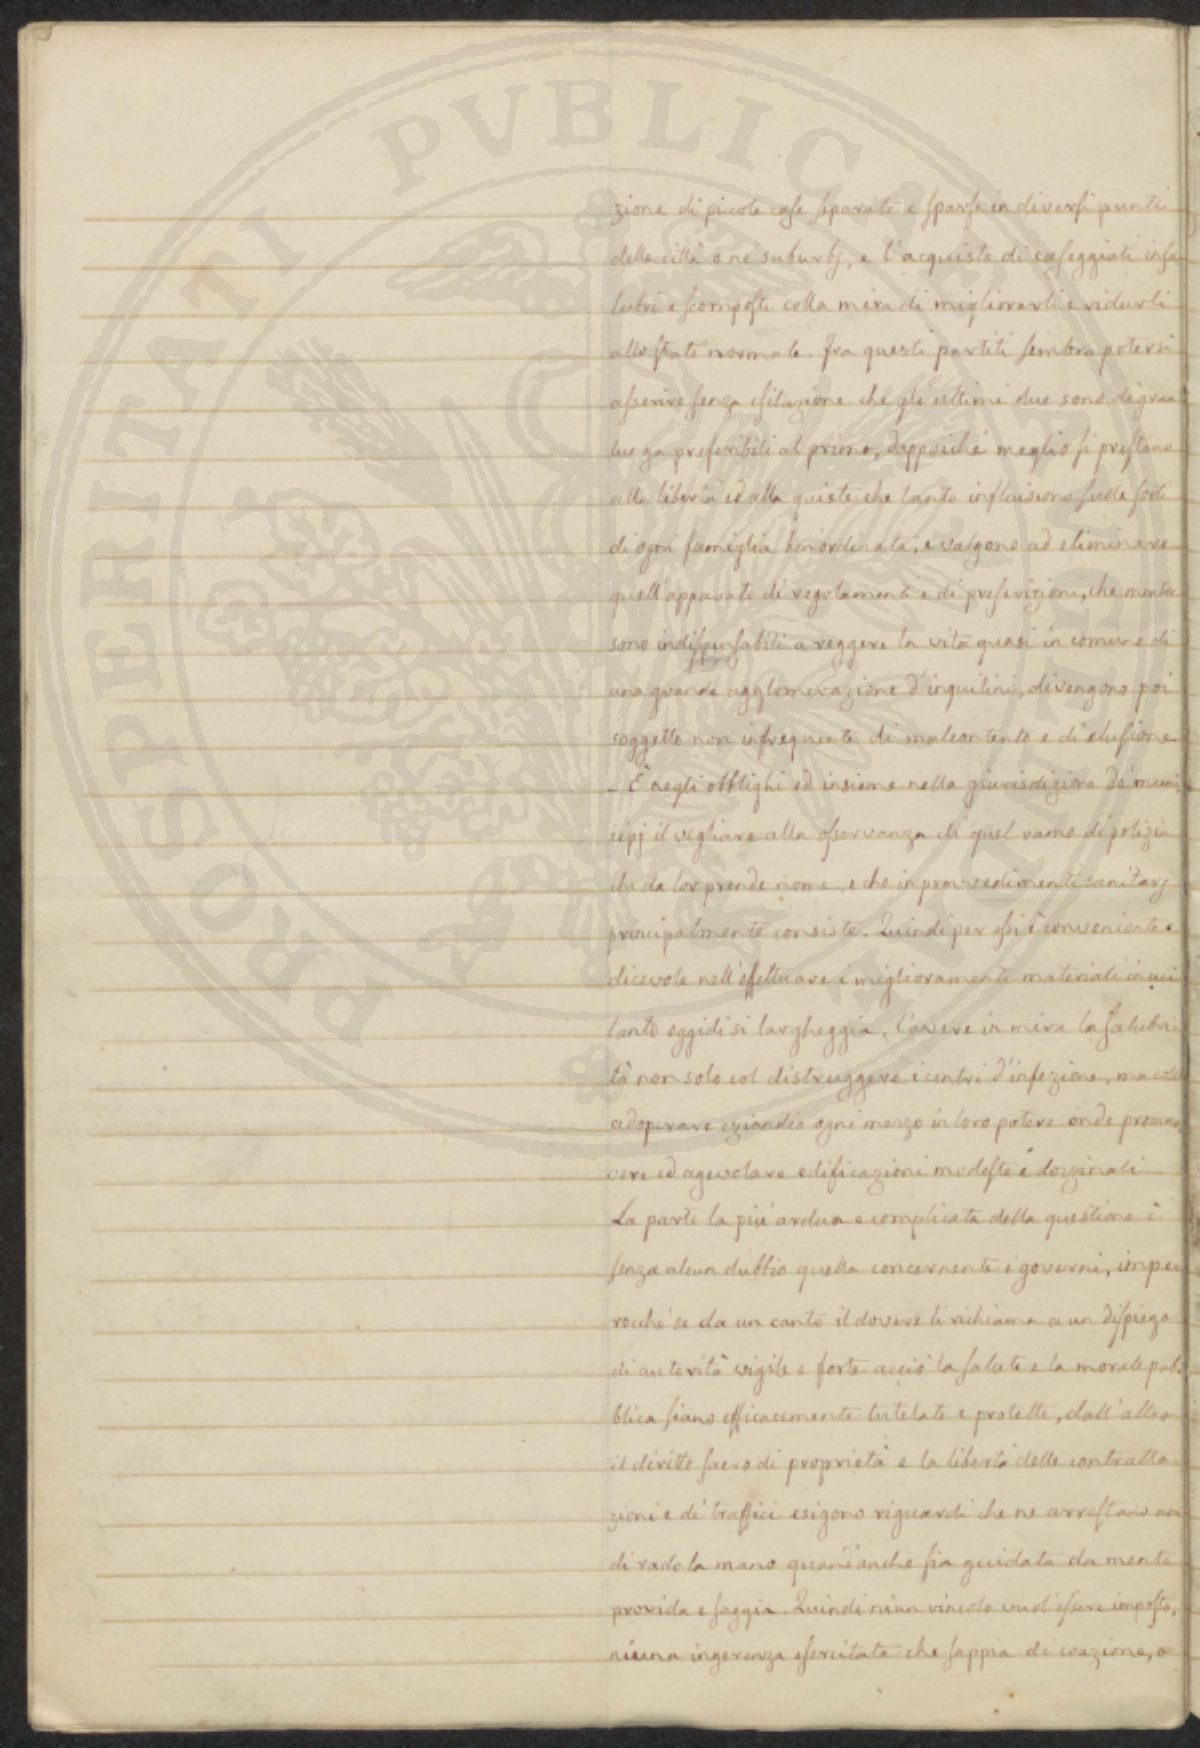 PROSPERITATI PVBLICAE AVGENDAE
zione di piccole case separate e sparse in diversi punti
della città o ne' suburbj, e l'acquisto di caseggiati insa
lubri e scomposti colla mira di migliorarli e ridurli
allo stato normale. Fra questi partiti sembra potersi
asserire senza esitazione che gli ultimi due sono di gran
lunga preferibili al primo, dappoiché meglio si prestano
alla libertà ed alla quiete che tanto influiscono sulle sorti
di ogni famiglia benordinata, e valgono ad eliminare
quell'apparato di regolamenti e di prescrizioni, che mentre
sono indispensabili a reggere la vita quasi in comune di
una grande agglomerazione d'inquilini, divengono poi
soggetto non infrequente di malcontento e di elusione.
- È negli obblighi ed insieme nella giurisdizione de' muni
cipj il vegliare alla osservanza di quel ramo di polizia
che da lor prende nome, e che in provvedimenti sanitarj
principalmente consiste. Quindi per essi è conveniente e
dicevole nell'effettuare i miglioramenti materiali in cui
tanto oggidì si largheggia, l'avere in mira la salubri
tà non solo col distruggere i centri d'infezione, ma coll'
adoperare eziandio ogni mezzo in loro potere onde promuo
vere ed agevolare edificazioni modeste e dozzinali.
La parte la più ardua e complicata della questione è
senza alcun dubbio quella concernente i governi, impe
rocché se da un canto il dovere li richiama a un dispiego
di autorità vigile e forte acciò la salute e la morale pub
blica siano efficacemente tutelate e protette, dall'altro
il diritto sacro di proprietà e la libertà delle contratta
zioni e de' traffici esigono riguardi che ne arrestano non
di rado la mano quand'anche sia guidata da mente
provida e saggia. Quindi niun vincolo vuol essere imposto,
niuna ingerenza esercitata che sappia di coazione, o